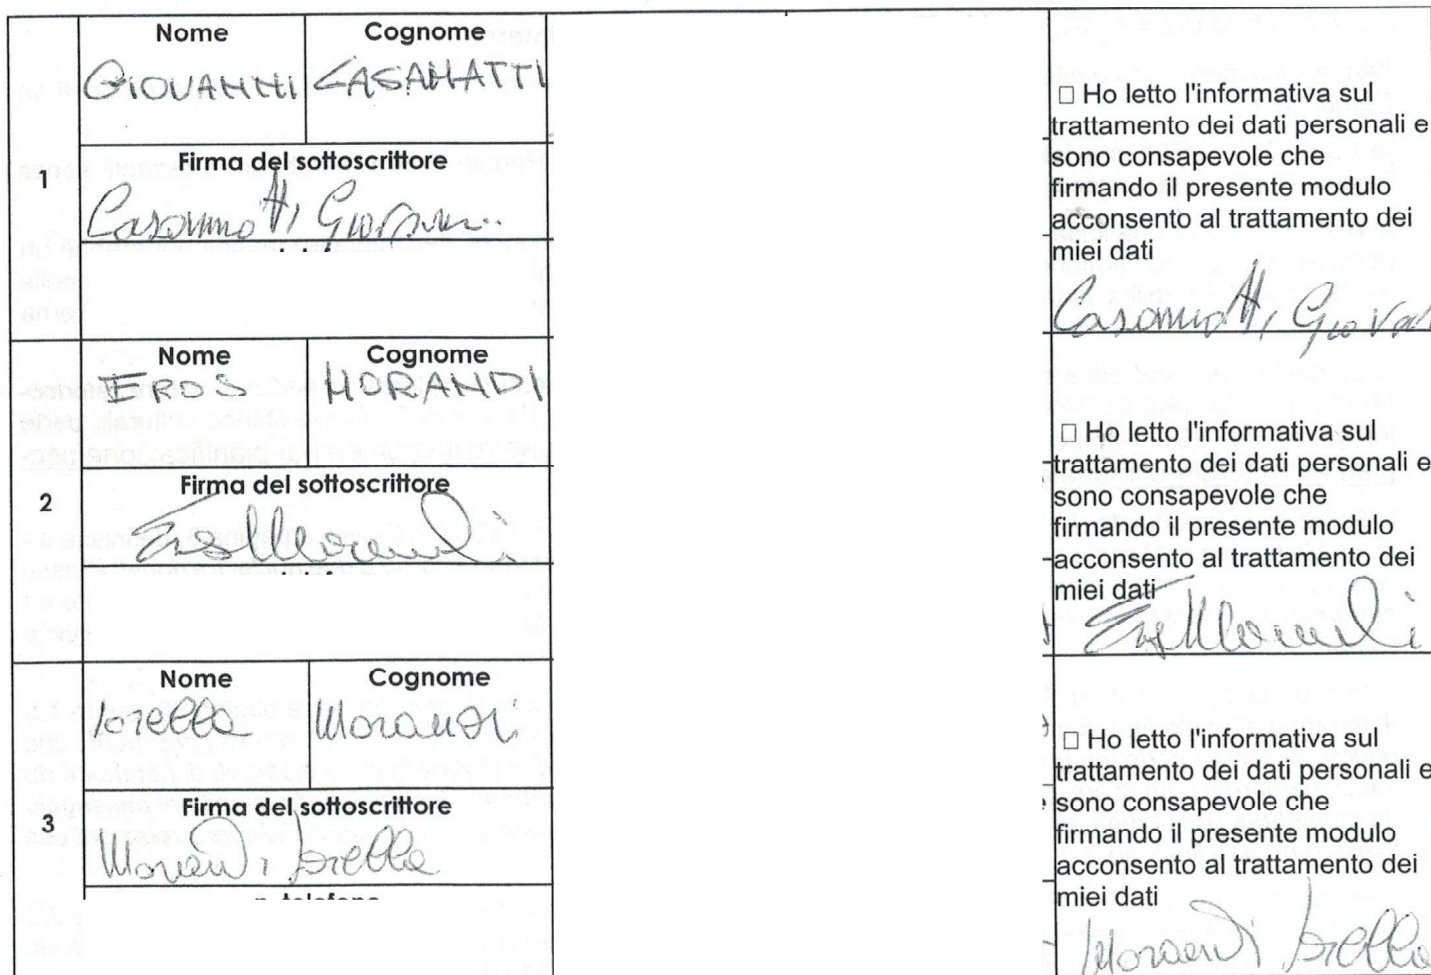 Nome Cognome
GIOVANNI CASAMATTI
Firma del sottoscrittore
1
Casamatti Giovanni
□ Ho letto l'informativa sul
trattamento dei dati personali e
sono consapevole che
firmando il presente modulo
acconsento al trattamento dei
miei dati
Casamatti Giovan
Nome Cognome
EROS MORANDI
Firma del sottoscrittore
2
Eros Morandi
□ Ho letto l'informativa sul
trattamento dei dati personali e
sono consapevole che
firmando il presente modulo
acconsento al trattamento dei
miei dati
Eros Morandi
Nome Cognome
Lorella Morandi
Firma del sottoscrittore
3
Morandi Lorella
n. telefono
□ Ho letto l'informativa sul
trattamento dei dati personali e
sono consapevole che
firmando il presente modulo
acconsento al trattamento dei
miei dati
Morandi Lorella